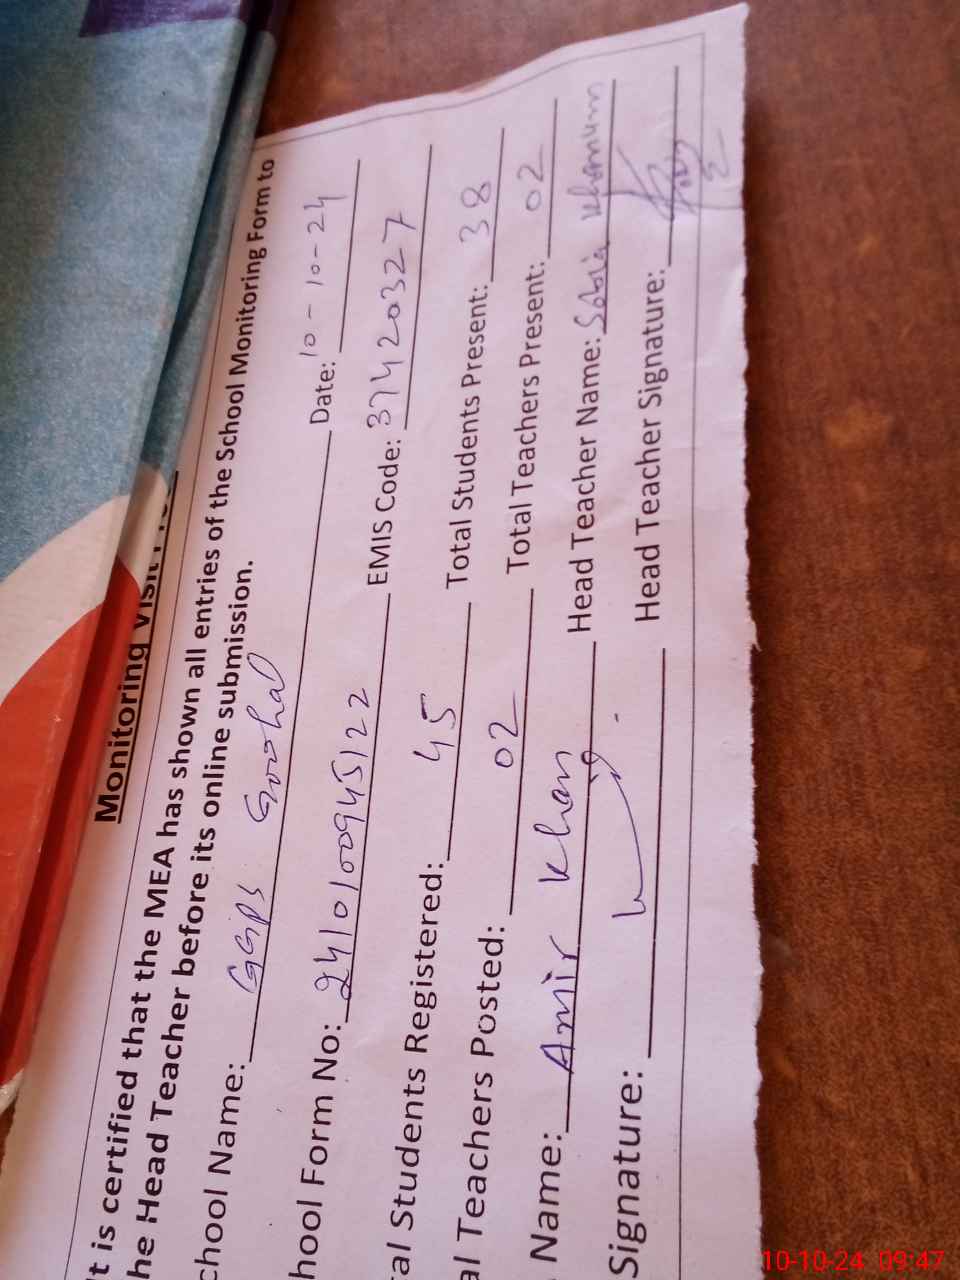 Monitoring Visit
It is certified that the MEA has shown all entries of the School Monitoring Form to
he Head Teacher before its online submission.
chool Name: GGPS Goohal Date: 10-10-24
hool Form No: 2410100945122 EMIS Code: 37420327
al Students Registered: 45 Total Students Present: 38
al Teachers Posted: 02 Total Teachers Present: 02
Name: Amir Khan Head Teacher Name: Sobia Khanum
Signature: Head Teacher Signature:
10-10-24 09:47